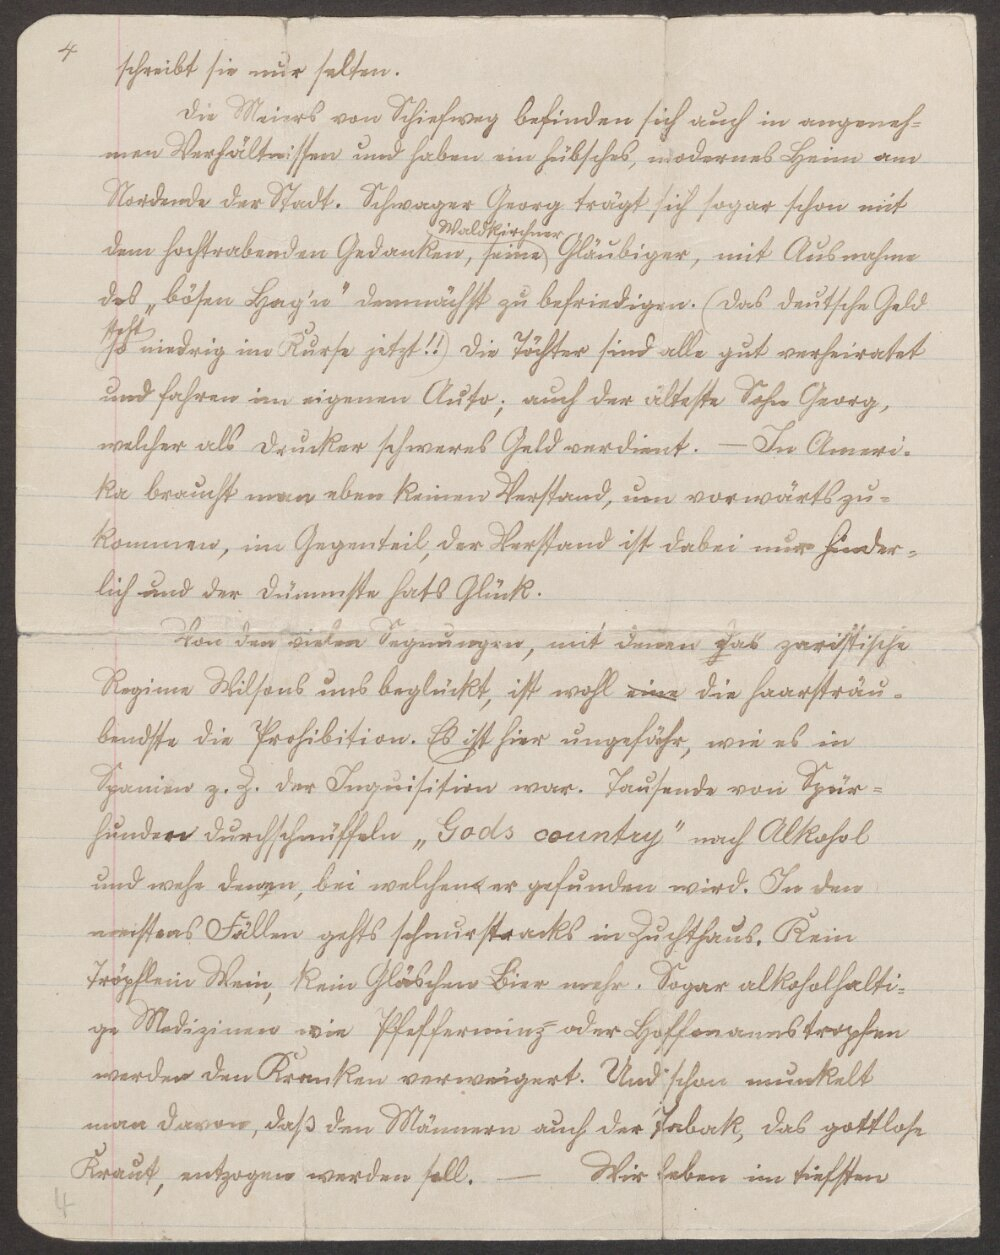 4
schreibt sie nur selten.
Die Meiers von Schiefweg befinden sich auch in angeneh-
men Verhältnissen und haben ein hübsches, modernes Heim am
Nordende der Stadt. Schwager Georg trägt sich sogar schon mit
Waldkirchner
dem hochtrabenden Gedanken, seine Gläubiger, mit Ausnahme
des „bösen Hag'n" demnächst zu befriedigen. (Das deutsche Geld
steht
so niedrig im Kurse jetzt!!) Die Töchter sind alle gut verheiratet
und fahren im eigenen Auto; auch der älteste Sohn Georg,
welcher als Drucker schweres Geld verdient. — In Ameri-
ka braucht man eben keinen Verstand, um vorwärtszu-
kommen, im Gegenteil, der Verstand ist dabei nur hinder-
lich und der Dümmste hats Glück.
Von den vielen Segnungen, mit denen das zaristische
Regime Wilsons uns beglückt, ist wohl eine die haarsträu-
bendste die Prohibition. Es ist hier ungefähr, wie es in
Spanien z. Z. der Inquisition war. Tausende von Spür-
hunden durchschnüffeln „Gods country" nach Alkohol
und wehe denen, bei welchen er gefunden wird. In den
meisten Fällen gehts schnurstracks in Zuchthaus. Kein
Tröpflein Wein, kein Gläschen Bier mehr. Sogar alkoholhalti-
ge Medizinen wie Pfefferminz- oder Hoffmannstropfen
werden den Kranken verweigert. Und schon munkelt
man davon, daß den Männern auch der Tabak, das gottlose
Kraut, entzogen werden soll. — Wir leben im tiefsten
4